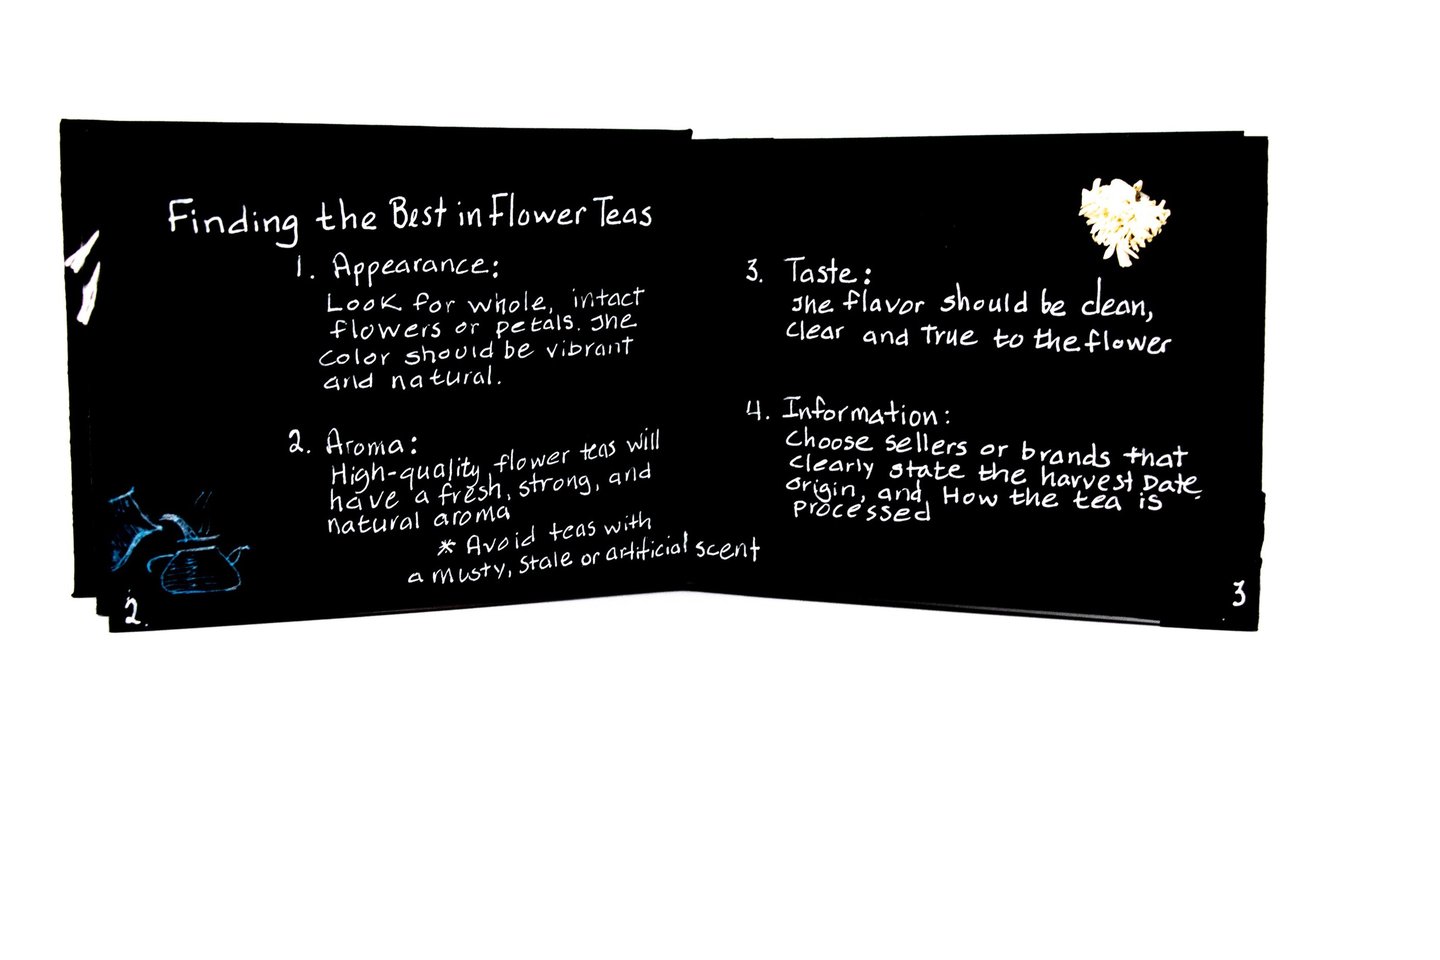 Finding the Best in Flower Teas
1. Appearance:
Look for whole, intact
flowers or petals. The
color should be vibrant
and natural.
2. Aroma:
High-quality flower teas will
have a fresh, strong, and
natural aroma
* Avoid teas with
a musty, stale or artificial scent
2.
3. Taste:
The flavor should be clean,
clear and True to the flower
4. Information:
Choose sellers or brands that
clearly state the harvest Date,
origin, and How the tea is
processed
3